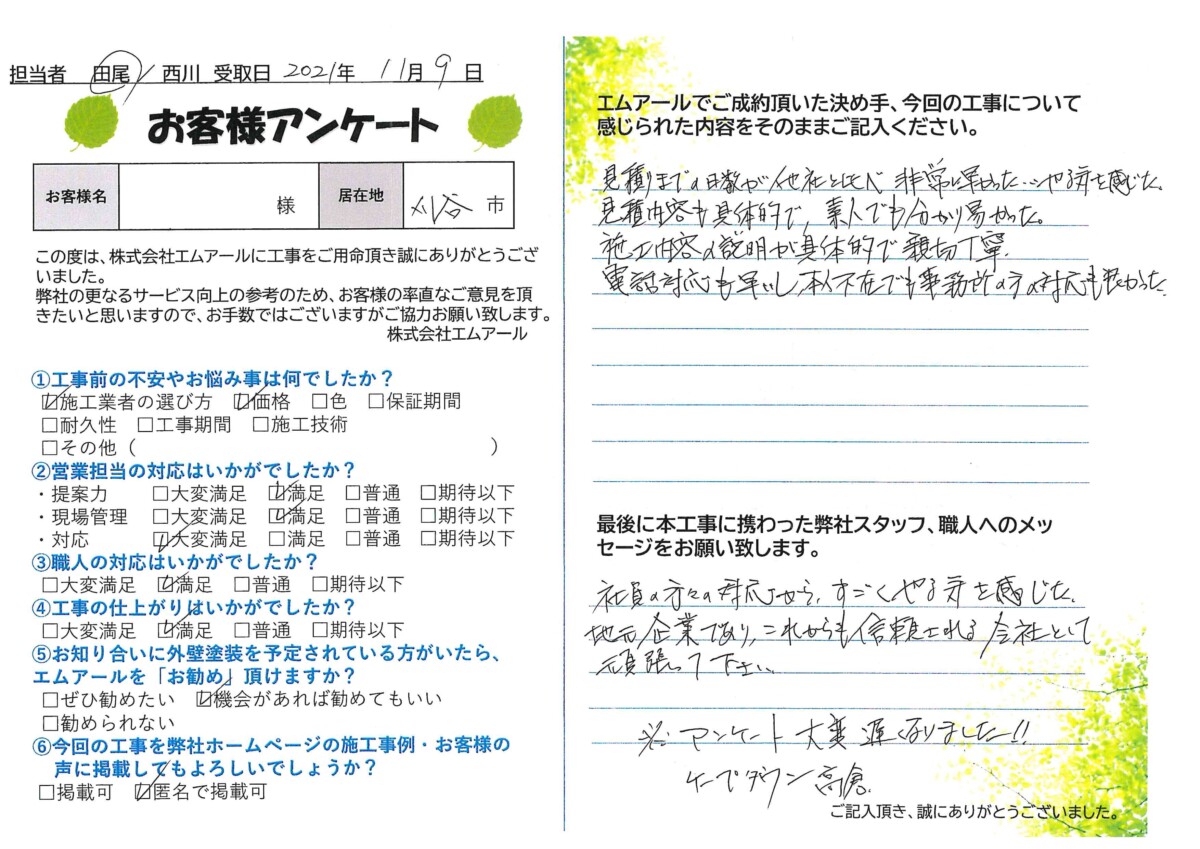 担当者 田尾 西川 受取日 2021年 11月 9日
お客様アンケート
お客様名 様 居在地 刈谷 市
この度は、株式会社エムアールに工事をご用命頂き誠にありがとうござ
いました。
弊社の更なるサービス向上の参考のため、お客様の率直なご意見を頂
きたいと思いますので、お手数ではございますがご協力お願い致します。
株式会社エムアール
①工事前の不安やお悩み事は何でしたか？
☑施工業者の選び方 ☑価格 □色 □保証期間
□耐久性 □工事期間 □施工技術
□その他（ ）
②営業担当の対応はいかがでしたか？
・提案力 □大変満足 ☑満足 □普通 □期待以下
・現場管理 □大変満足 ☑満足 □普通 □期待以下
・対応 ☑大変満足 □満足 □普通 □期待以下
③職人の対応はいかがでしたか？
□大変満足 ☑満足 □普通 □期待以下
④工事の仕上がりはいかがでしたか？
□大変満足 ☑満足 □普通 □期待以下
⑤お知り合いに外壁塗装を予定されている方がいたら、
エムアールを「お勧め」頂けますか？
□ぜひ勧めたい ☑機会があれば勧めてもいい
□勧められない
⑥今回の工事を弊社ホームページの施工事例・お客様の
声に掲載してもよろしいでしょうか？
□掲載可 ☑匿名で掲載可
エムアールでご成約頂いた決め手、今回の工事について
感じられた内容をそのままご記入ください。
見積りまでの日数が他社と比べ 非常に早かった…やる気を感じた。
見積内容も具体的で、素人でも分かり易かった。
施工内容の説明が具体的で親切丁寧。
電話対応も早いし、本人不在でも事務所の方の対応も良かった。
最後に本工事に携わった弊社スタッフ、職人へのメッ
セージをお願い致します。
社員の方々の対応から、すごくやる気を感じた。
地元企業であり、これからも信頼される会社として
頑張って下さい。
※アンケート大変遅くなりました!!
ケープタウン高倉
ご記入頂き、誠にありがとうございました。